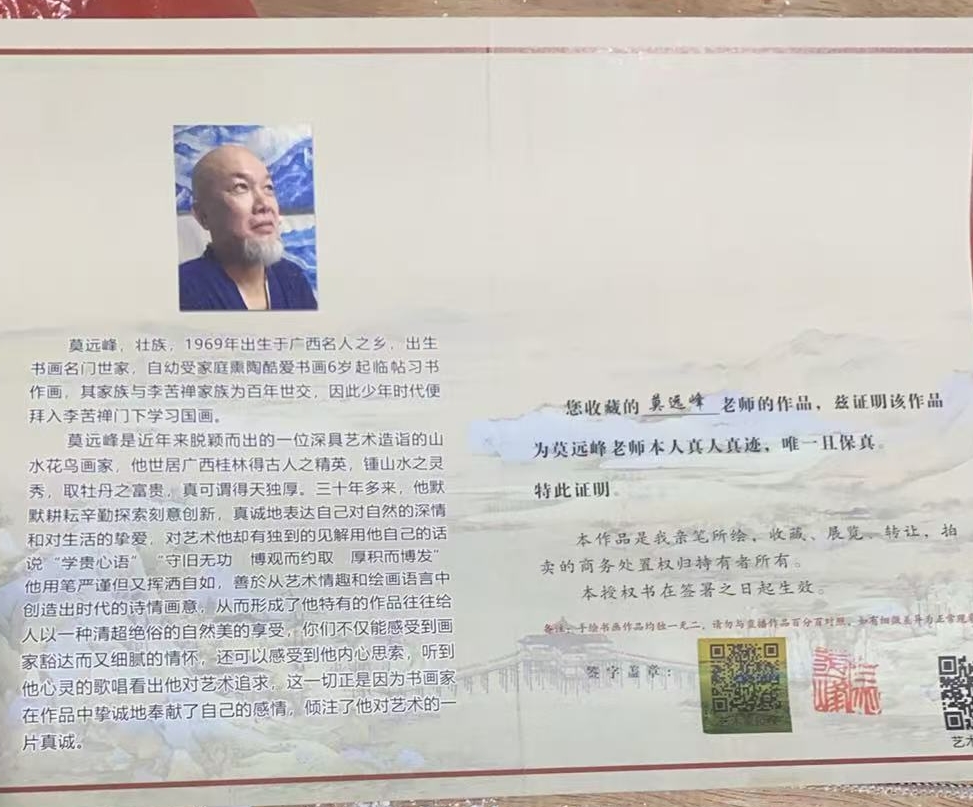 莫远峰，壮族，1969年出生于广西名人之乡，出生
书画名门世家，自幼受家庭熏陶酷爱书画6岁起临帖习书
作画，其家族与李苦禅家族为百年世交，因此少年时代便
拜入李苦禅门下学习国画。
莫远峰是近年来脱颖而出的一位深具艺术造诣的山
水花鸟画家，他世居广西桂林得古人之精英，锺山水之灵
秀，取牡丹之富贵，真可谓得天独厚。三十年多来，他默
默耕耘辛勤探索刻意创新，真诚地表达自己对自然的深情
和对生活的挚爱，对艺术他却有独到的见解用他自己的话
说“学贵心语”　“守旧无功　博观而约取　厚积而博发”
他用笔严谨但又挥洒自如，善於从艺术情趣和绘画语言中
创造出时代的诗情画意，从而形成了他特有的作品往往给
人以一种清超绝俗的自然美的享受，你们不仅能感受到画
家豁达而又细腻的情怀，还可以感受到他内心思索，听到
他心灵的歌唱看出他对艺术追求，这一切正是因为书画家
在作品中挚诚地奉献了自己的感情，倾注了他对艺术的一
片真诚。
您收藏的 莫远峰 老师的作品，兹证明该作品
为莫远峰老师本人真人真迹，唯一且保真。
特此证明。
本作品是我亲笔所绘，收藏、展览、转让，拍
卖的商务处置权归持有者所有。
本授权书在签署之日起生效。
备注：手绘书画作品均独一无二，请勿与直播作品百分百对照，如有细微差异为正常现
签字盖章：
艺术